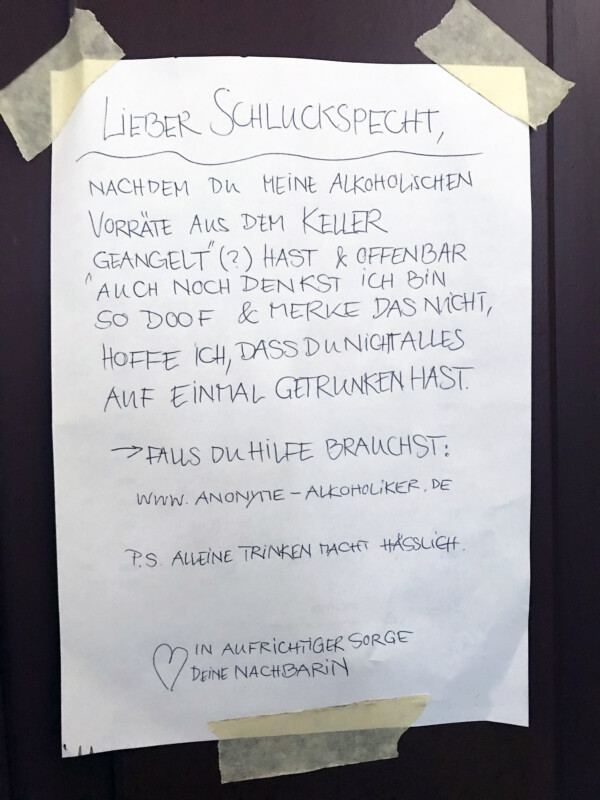 LIEBER SCHLUCKSPECHT,
NACHDEM DU MEINE ALKOHOLISCHEN
VORRÄTE AUS DEM KELLER
"GEANGELT" (?) HAST & OFFENBAR
AUCH NOCH DENKST ICH BIN
SO DOOF & MERKE DAS NICHT,
HOFFE ICH, DASS DU NICHT ALLES
AUF EINMAL GETRUNKEN HAST.
→ FALLS DU HILFE BRAUCHST:
WWW. ANONYME-ALKOHOLIKER.DE
P.S. ALLEINE TRINKEN MACHT HÄSSLICH.
♡ IN AUFRICHTIGER SORGE
DEINE NACHBARIN